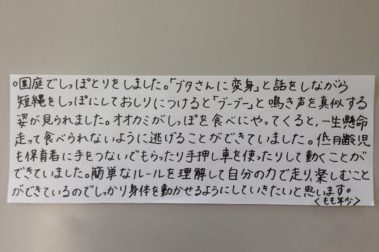 ○園庭でしっぽとりをしました。「ブタさんに変身」と話をしながら
短縄をしっぽにしておしりにつけると「ブーブー」と鳴き声を真似する
姿が見られました。オオカミがしっぽを食べにやってくると、一生懸命
走って食べられないように逃げることができていました。低月齢児
も保育者に手をつないでもらったり手押し車を使ったりして動くことが
できていました。簡単なルールを理解して自分の力で走り、楽しむこと
ができているのでしっかり身体を動かせるようにしていきたいと思います。